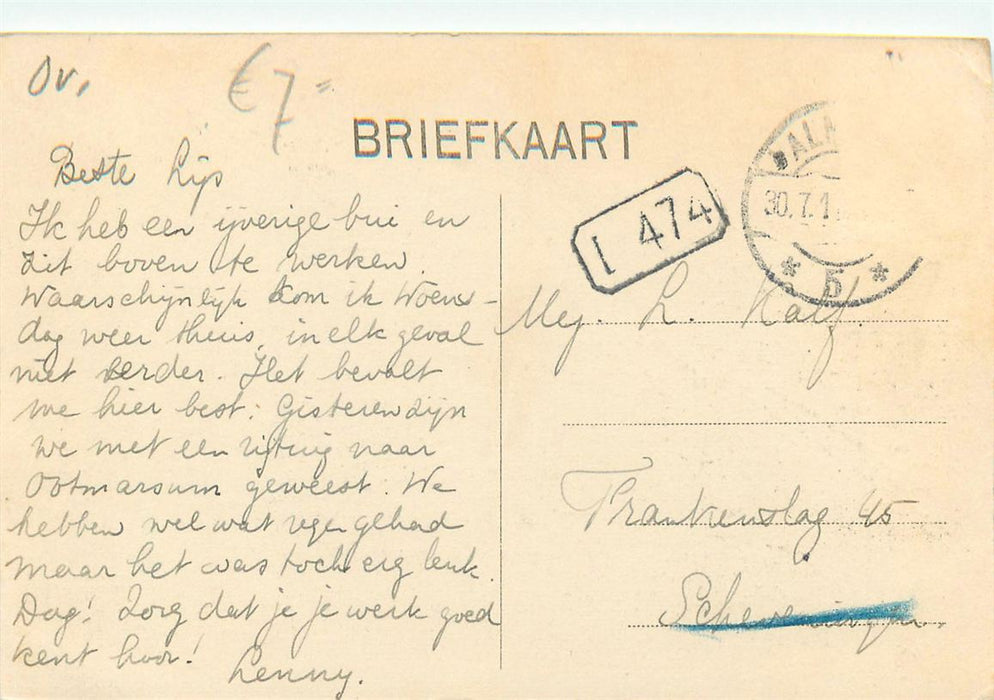 Ov.
€7=
BRIEFKAART
Beste Lijs
Ik heb een ijverige bui en
zit boven te werken.
Waarschijnlijk kom ik Woens-
dag weer thuis, in elk geval
niet eerder. Het bevalt
me hier best. Gisteren zijn
we met een rijtuig naar
Ootmarsum geweest. We
hebben wel wat regen gehad
maar het was toch erg leuk.
Dag! Zorg dat je je werk goed
kent hoor!
Lenny.
I 474
30.7.1
* 5 *
Mej. L. Kalf.
Frankenslag 45
Scheveningen.